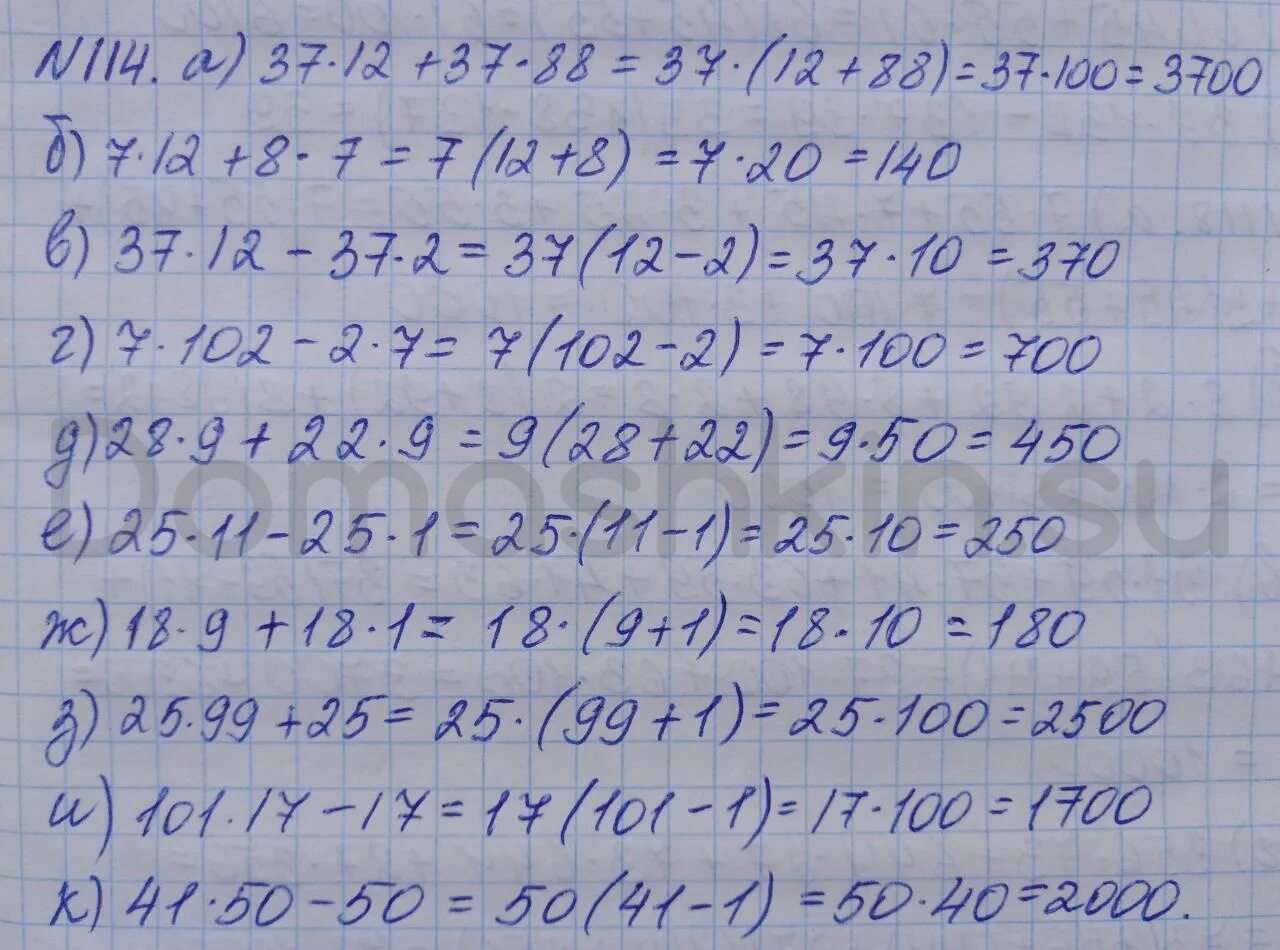 N114. а) 37·12 + 37·88 = 37·(12 + 88) = 37·100 = 3700
б) 7·12 + 8·7 = 7(12 + 8) = 7·20 = 140
в) 37·12 - 37·2 = 37(12 - 2) = 37·10 = 370
г) 7·102 - 2·7 = 7(102 - 2) = 7·100 = 700
д) 28·9 + 22·9 = 9(28 + 22) = 9·50 = 450
Domoshkin.su
е) 25·11 - 25·1 = 25·(11 - 1) = 25·10 = 250
ж) 18·9 + 18·1 = 18·(9 + 1) = 18·10 = 180
з) 25·99 + 25 = 25·(99 + 1) = 25·100 = 2500
и) 101·17 - 17 = 17(101 - 1) = 17·100 = 1700
к) 41·50 - 50 = 50(41 - 1) = 50·40 = 2000.